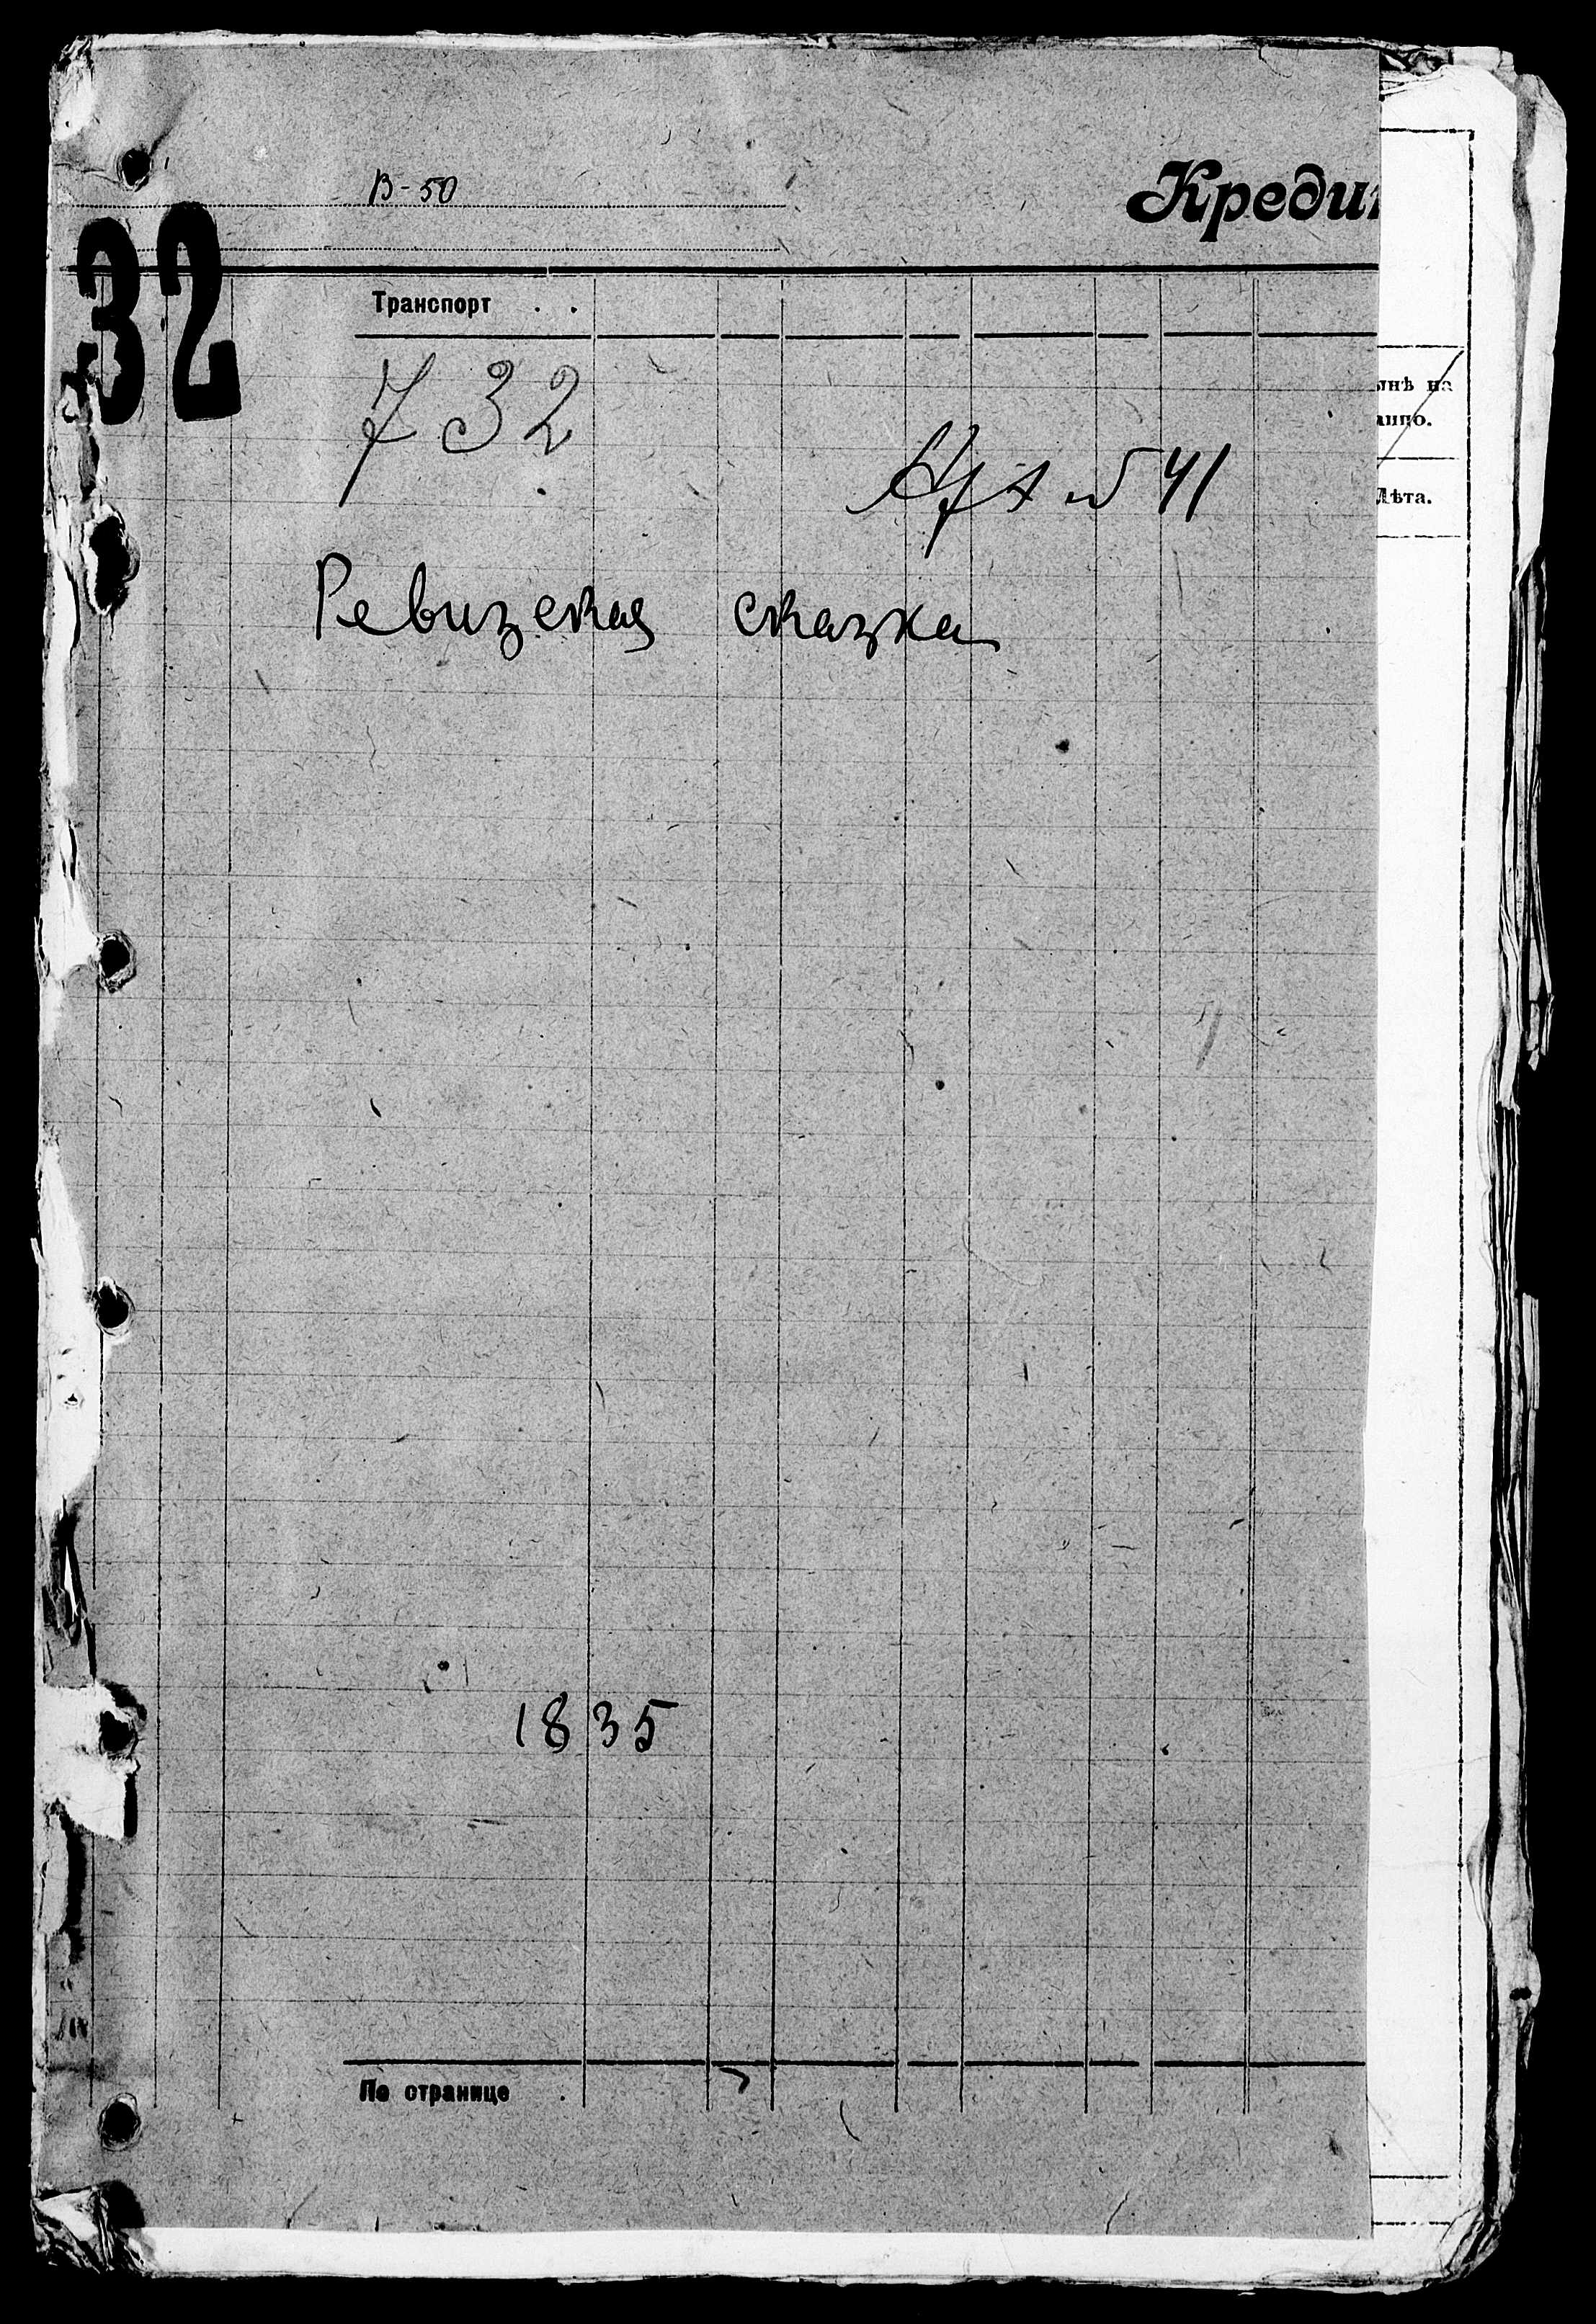 В-50
Кредит
32
Транспорт . .
732
№ 41
Ревизская сказка
ынѣ на
Лѣта.
1835
По странице .